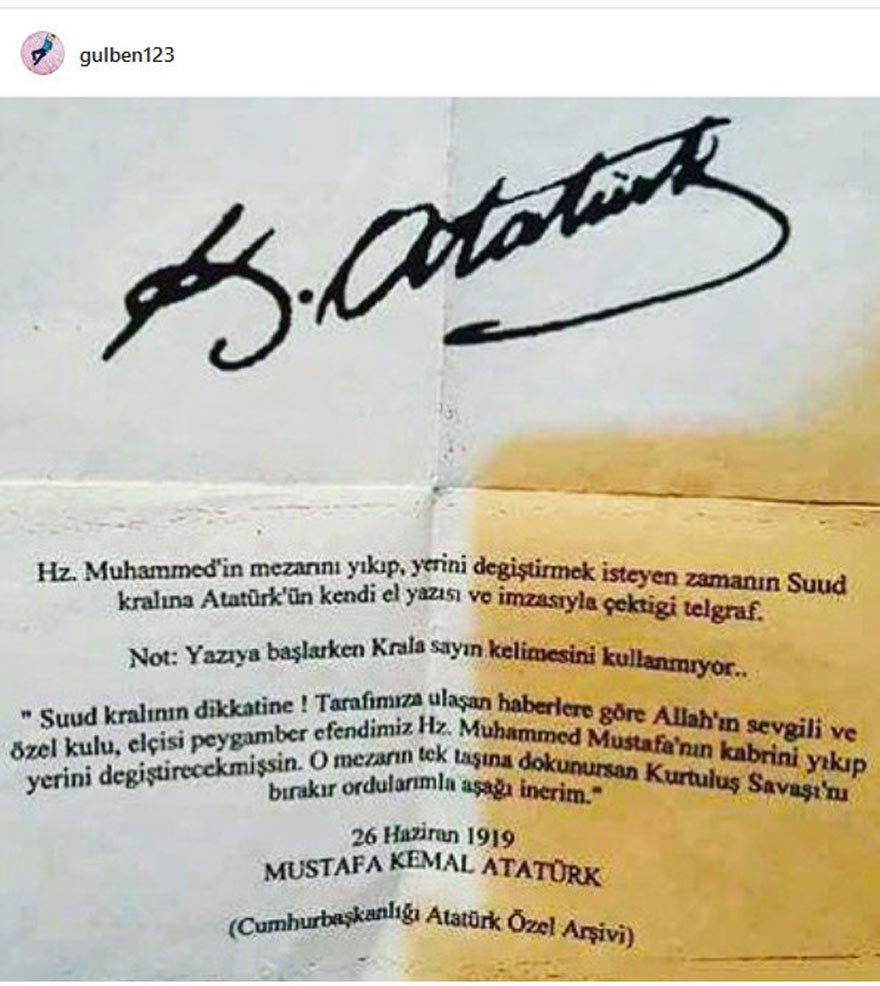 gulben123
K. Atatürk
Hz. Muhammed'in mezarını yıkıp, yerini degiştirmek isteyen zamanın Suud
kralına Atatürk'ün kendi el yazısı ve imzasıyla çektigi telgraf.
Not: Yazıya başlarken Krala sayın kelimesini kullanmıyor..
" Suud kralının dikkatine ! Tarafımıza ulaşan haberlere göre Allah'ın sevgili ve
özel kulu, elçisi peygamber efendimiz Hz. Muhammed Mustafa'nın kabrini yıkıp
yerini degiştirecekmişsin. O mezarın tek taşına dokunursan Kurtuluş Savaşı'nı
bırakır ordularımla aşağı inerim."
26 Haziran 1919
MUSTAFA KEMAL ATATÜRK
(Cumhurbaşkanlığı Atatürk Özel Arşivi)